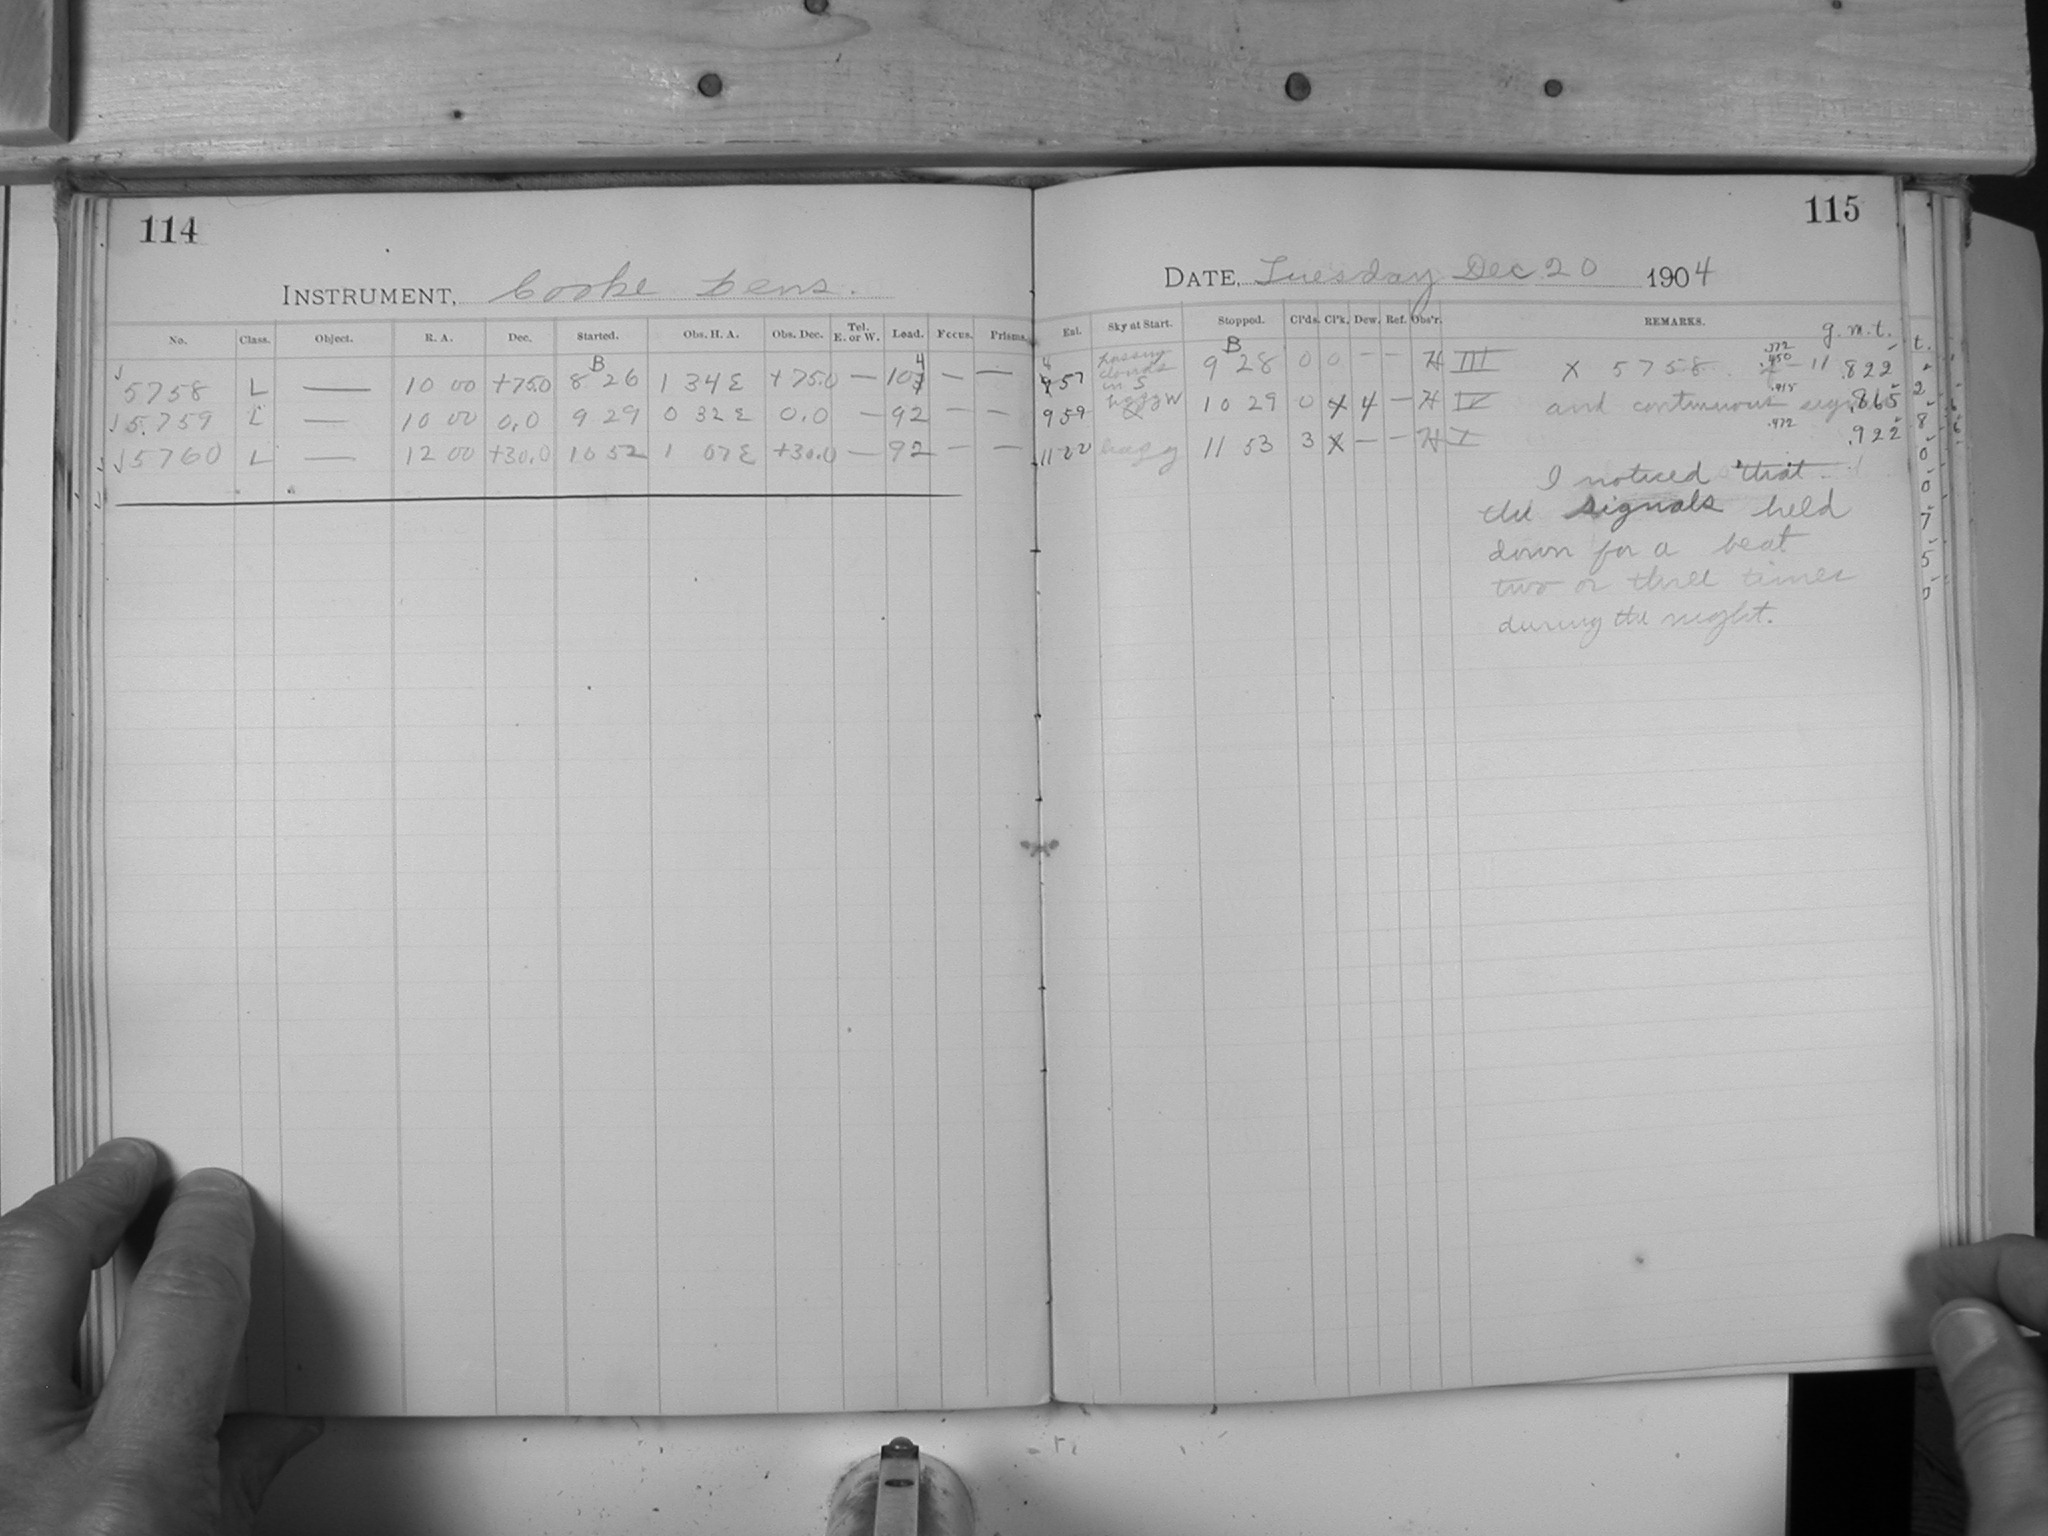 114
INSTRUMENT, Cooke Lens.
No. Class. Object. R. A. Dec. Started. Obs. H. A. Obs. Dec. Tel. E. or W. Load. Focus. Prisms.
5758 L — 10 00 +75.0 B 8 26 1 34 E +75.0 — 104 — —
5759 L — 10 00 0.0 9 29 0 32 E 0.0 — 92 — —
5760 L — 12 00 +30.0 10 52 1 07 E +30.0 — 92 — —
115
DATE, Tuesday Dec 20 1904
Exl. Sky at Start. Stopped. Cl'ds. Cl'k. Dew. Ref. Obs'r. REMARKS. g.m.t.
57 passing clouds in S B 9 28 0 0 — — H III X 5758 11 .822
9 59 hazy W 10 29 0 X 4 — H IV and continuous .865
11 22 hazy 11 53 3 X — — H V .972 .922
I noticed that
the signals held
down for a beat
two or three times
during the night.